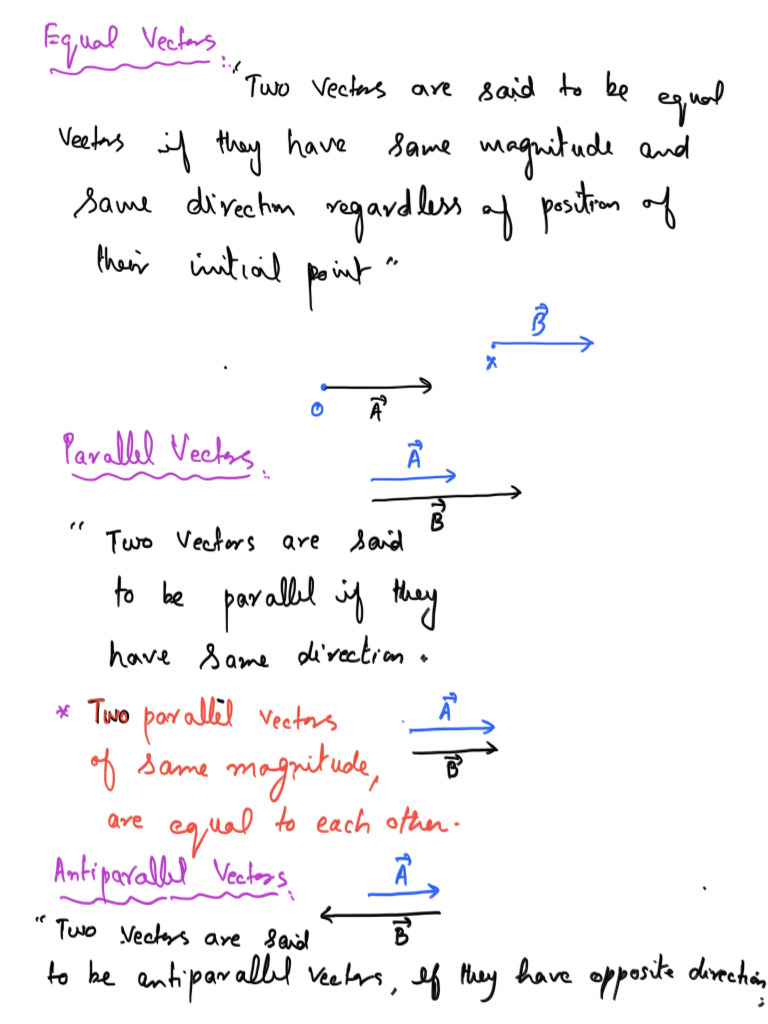 Equal Vectors :.
"Two vectors are said to be equal
vectors if they have same magnitude and
same direction regardless of position of
their initial point"
B
x
O
A
Parallel Vectors :.
A
B
" Two vectors are said
to be parallel if they
have same direction.
* Two parallel vectors
of same magnitude,
are equal to each other.
A
B
Antiparallel Vectors :
A
B
"Two vectors are said
to be antiparallel vectors, if they have opposite direction